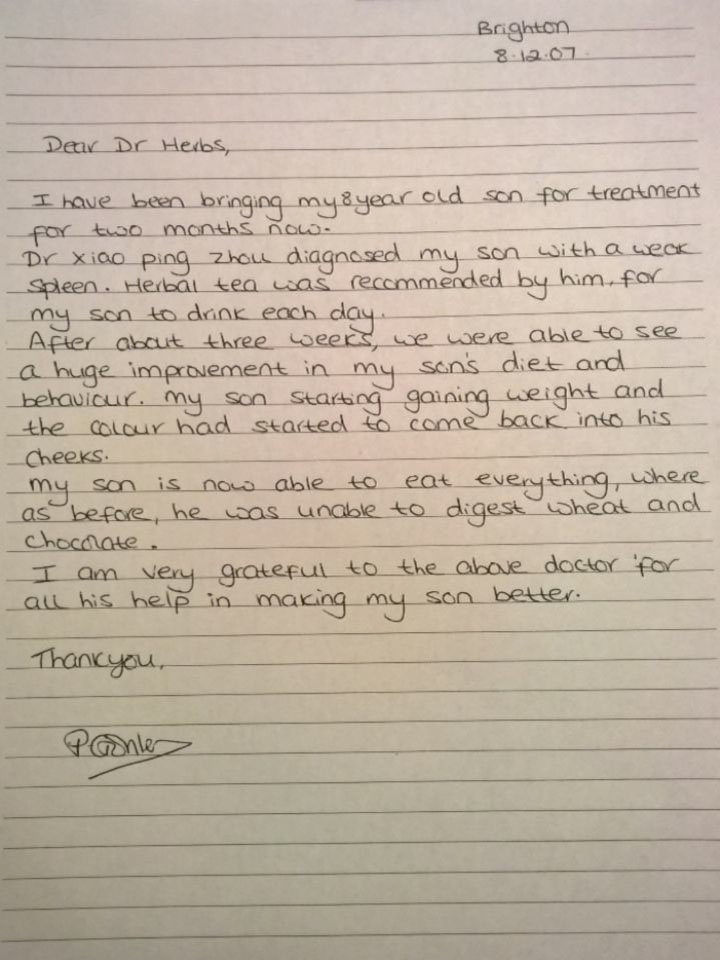 Brighton
8.12.07.
Dear Dr Herbs,
I have been bringing my 8 year old son for treatment
for two months now.
Dr xiao ping zhou diagnosed my son with a weak
spleen. Herbal tea was recommended by him, for
my son to drink each day.
After about three weeks, we were able to see
a huge improvement in my son's diet and
behaviour. my son starting gaining weight and
the colour had started to come back into his
cheeks.
my son is now able to eat everything, where
as before, he was unable to digest wheat and
chocolate.
I am very grateful to the above doctor for
all his help in making my son better.
Thankyou,